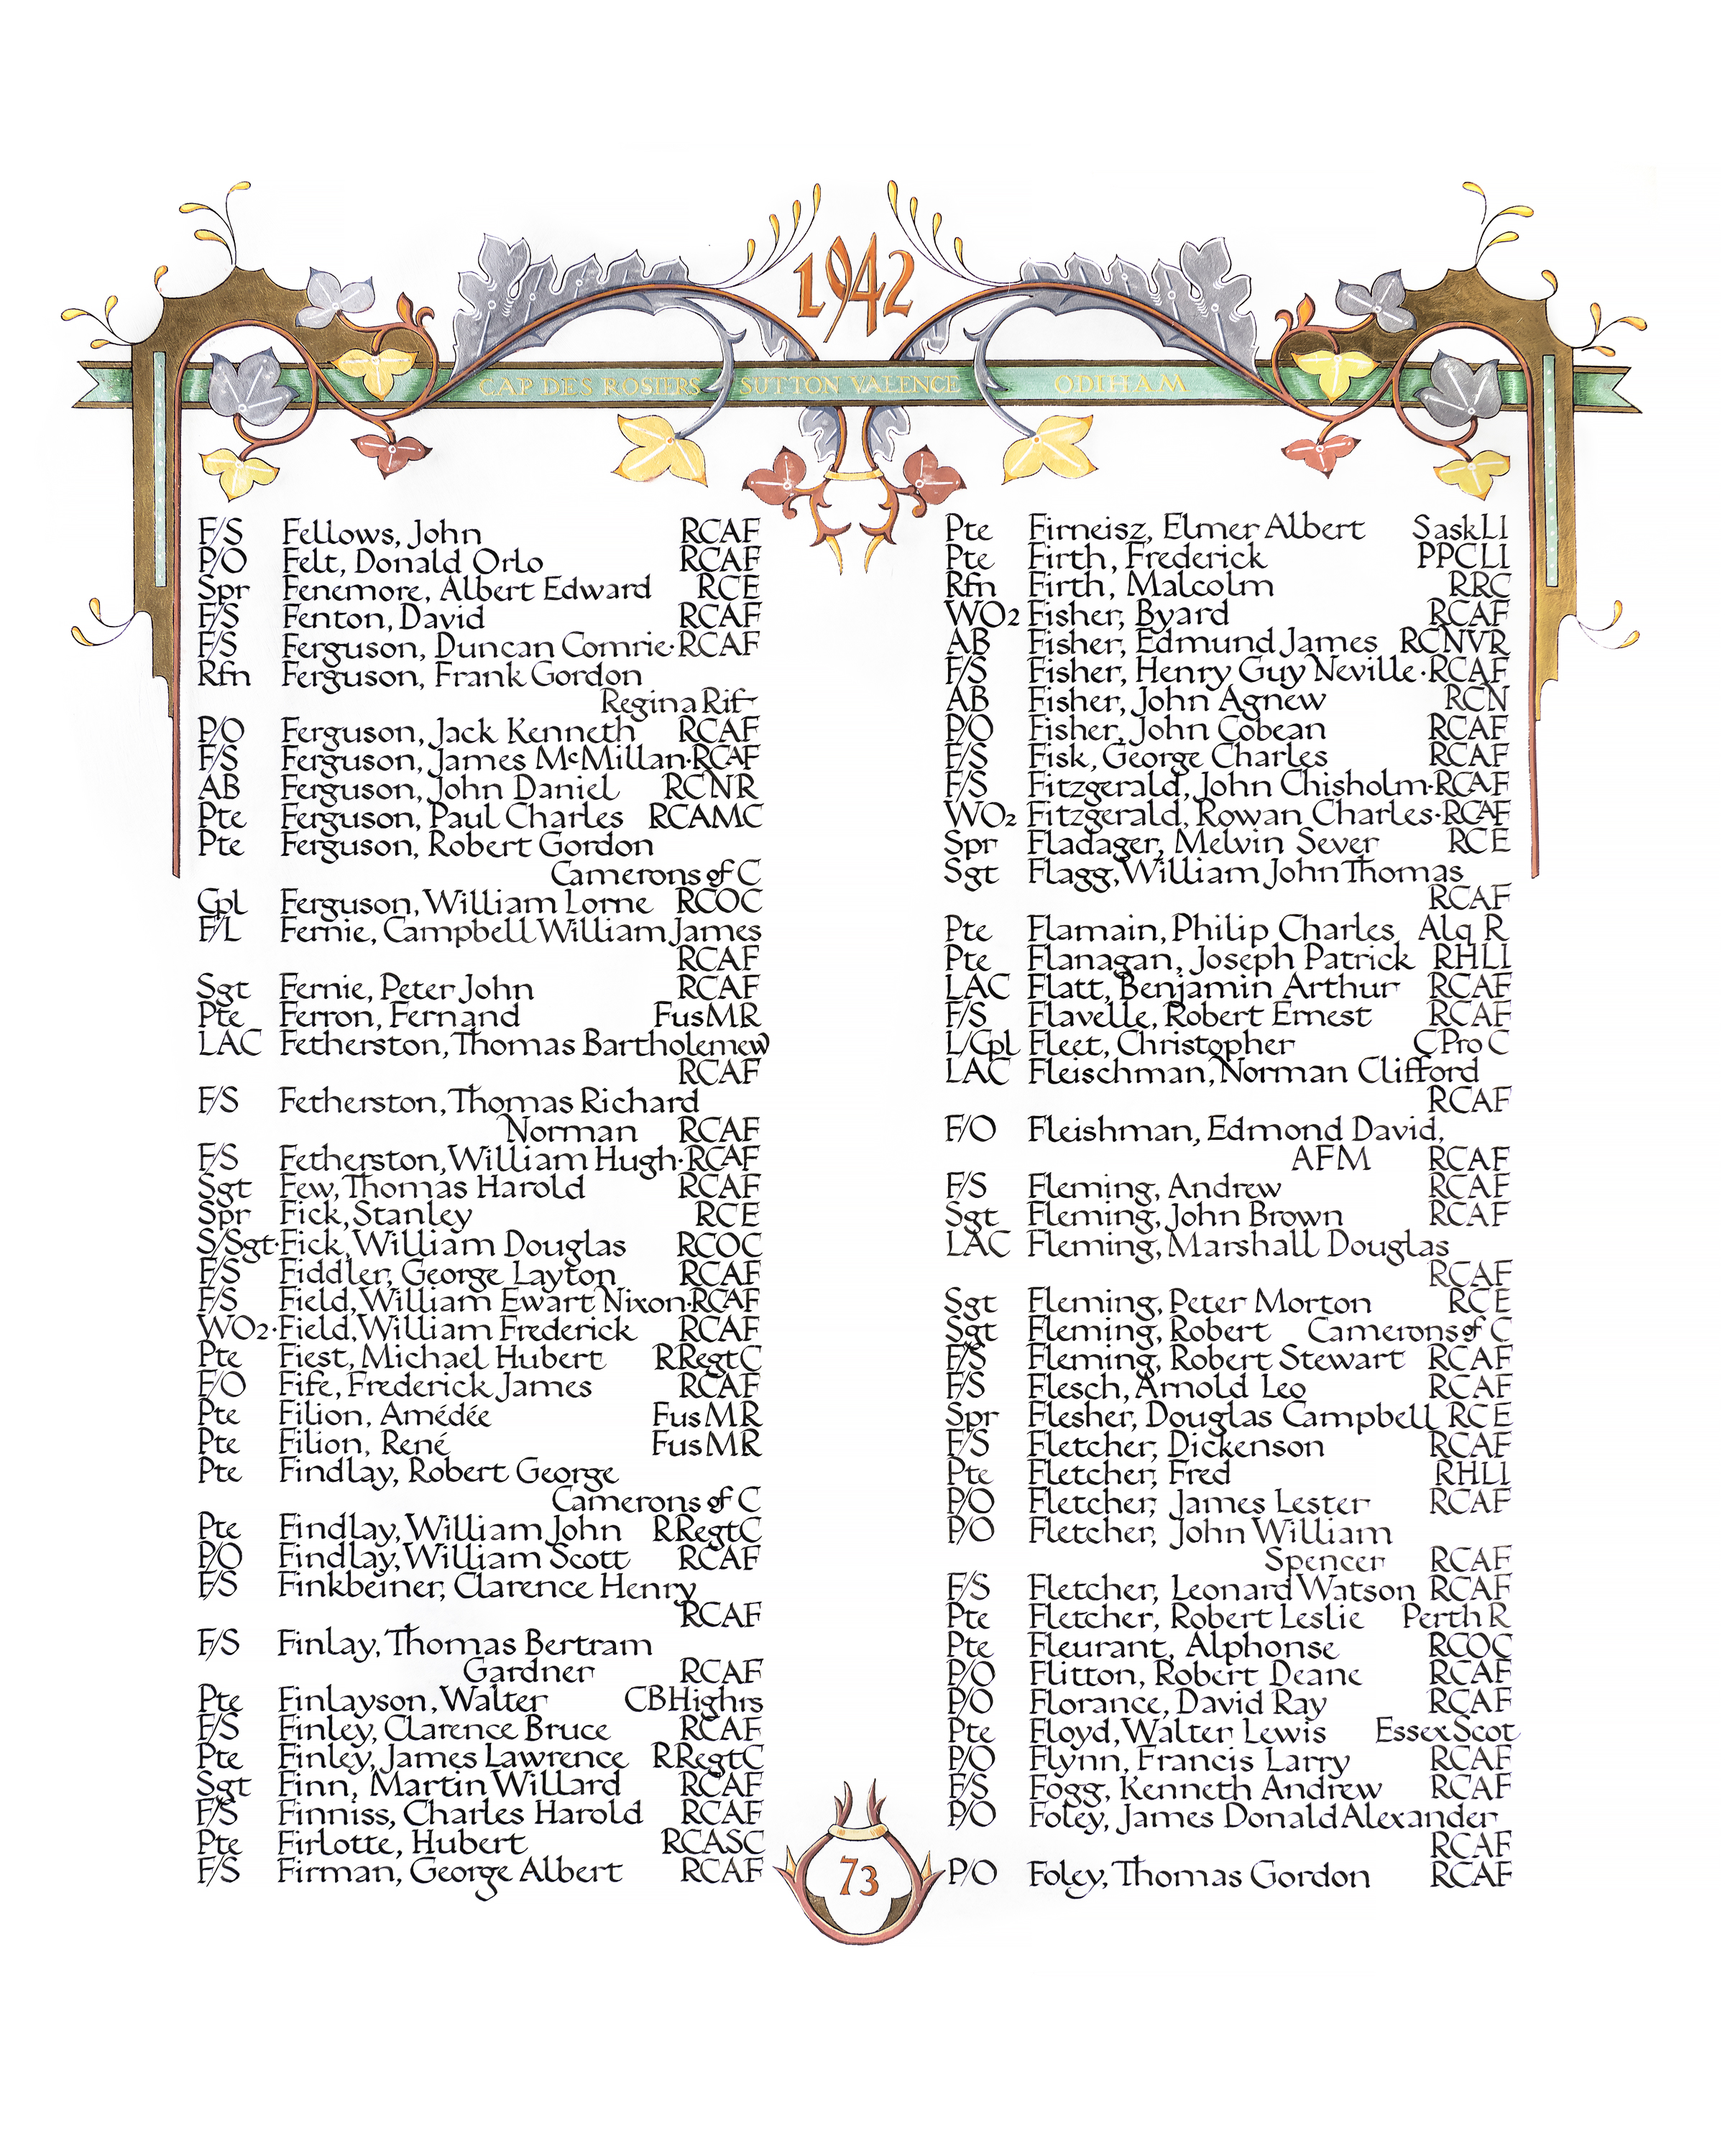 1942
CAP DES ROSIERS SUTTON VALENCE ODIHAM
F/S Fellows, John RCAF
P/O Felt, Donald Orlo RCAF
Spr Fenemore, Albert Edward RCE
F/S Fenton, David RCAF
F/S Ferguson, Duncan Comrie·RCAF
Rfn Ferguson, Frank Gordon
Regina Rif
P/O Ferguson, Jack Kenneth RCAF
F/S Ferguson, James McMillan·RCAF
AB Ferguson, John Daniel RCNR
Pte Ferguson, Paul Charles RCAMC
Pte Ferguson, Robert Gordon
Camerons of C
Cpl Ferguson, William Lorne RCOC
F/L Fernie, Campbell William James
RCAF
Sgt Fernie, Peter John RCAF
Pte Ferron, Fernand FusMR
LAC Fetherston, Thomas Bartholemew
RCAF
F/S Fetherston, Thomas Richard
Norman RCAF
F/S Fetherston, William Hugh·RCAF
Sgt Few, Thomas Harold RCAF
Spr Fick, Stanley RCE
S/Sgt·Fick, William Douglas RCOC
F/S Fiddler, George Layton RCAF
F/S Field, William Ewart Nixon·RCAF
WO2·Field, William Frederick RCAF
Pte Fiest, Michael Hubert RRegtC
F/O Fife, Frederick James RCAF
Pte Filion, Amédée FusMR
Pte Filion, René FusMR
Pte Findlay, Robert George
Camerons of C
Pte Findlay, William John RRegtC
P/O Findlay, William Scott RCAF
F/S Finkbeiner, Clarence Henry
RCAF
F/S Finlay, Thomas Bertram
Gardner RCAF
Pte Finlayson, Walter CBHighrs
F/S Finley, Clarence Bruce RCAF
Pte Finley, James Lawrence RRegtC
Sgt Finn, Martin Willard RCAF
F/S Finniss, Charles Harold RCAF
Pte Firlotte, Hubert RCASC
F/S Firman, George Albert RCAF
Pte Firneisz, Elmer Albert SaskLI
Pte Firth, Frederick PPCLI
Rfn Firth, Malcolm RRC
WO2 Fisher, Byard RCAF
AB Fisher, Edmund James RCNVR
F/S Fisher, Henry Guy Neville·RCAF
AB Fisher, John Agnew RCN
P/O Fisher, John Cobean RCAF
F/S Fisk, George Charles RCAF
F/S Fitzgerald, John Chisholm·RCAF
WO2 Fitzgerald, Rowan Charles·RCAF
Spr Fladager, Melvin Sever RCE
Sgt Flagg, William John Thomas
RCAF
Pte Flamain, Philip Charles Alq R
Pte Flanagan, Joseph Patrick RHLI
LAC Flatt, Benjamin Arthur RCAF
F/S Flavelle, Robert Ernest RCAF
L/Cpl Fleet, Christopher CProC
LAC Fleischman, Norman Clifford
RCAF
F/O Fleishman, Edmond David,
AFM RCAF
F/S Fleming, Andrew RCAF
Sgt Fleming, John Brown RCAF
LAC Fleming, Marshall Douglas
RCAF
Sgt Fleming, Peter Morton RCE
Sgt Fleming, Robert Camerons of C
F/S Fleming, Robert Stewart RCAF
F/S Flesch, Arnold Leo RCAF
Spr Flesher, Douglas Campbell RCE
F/S Fletcher, Dickenson RCAF
Pte Fletcher, Fred RHLI
P/O Fletcher, James Lester RCAF
P/O Fletcher, John William
Spencer RCAF
F/S Fletcher, Leonard Watson RCAF
Pte Fletcher, Robert Leslie Perth R
Pte Fleurant, Alphonse RCOC
P/O Flitton, Robert Deane RCAF
P/O Florance, David Ray RCAF
Pte Floyd, Walter Lewis Essex Scot
P/O Flynn, Francis Larry RCAF
F/S Fogg, Kenneth Andrew RCAF
P/O Foley, James Donald Alexander
RCAF
P/O Foley, Thomas Gordon RCAF
73